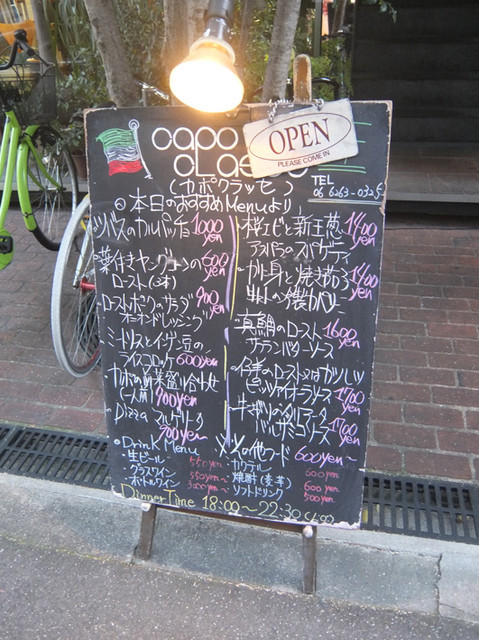 capo
OPEN
PLEASE COME IN
(カポクラッセ)
TEL
06 6263-0325
本日のおすすめMenuより
ツバスのカルパッチョ 1000yen
葉付きヤングコーンの 600yen
ロースト(2本)
ローストポークのサラダ 900yen
オニオンドレッシング
ミートソースとインゲン豆の
ライスコロッケ 600yen
カポの前菜盛り合わせ
(一人前) 900yen
Pizza マルゲリータ
900yen~
桜エビと新玉葱 1400yen
アスパラのスパゲティ
カニ身と焼き茄子 1400yen
真鯛のロースト 1600yen
サフランバターソース
ピッツァイオーラソース 1700yen
バルサミコソース 1700yen
その他フード 600yen~
Drink Menu
生ビール 550yen~
グラスワイン 550yen~
ボトルワイン 3000yen~
カクテル 600yen
焼酎(麦・芋) 600yen
ソフトドリンク 500yen
Dinner Time 18:00~22:30